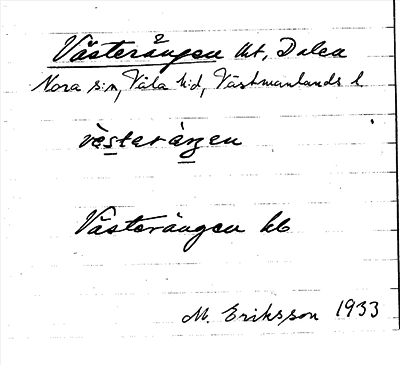 Västerängen ht, Dalea
Nora s:n, Våla h:d, Västmanlands l
vèsteràŋen
Västerängen hb
M. Eriksson 1933